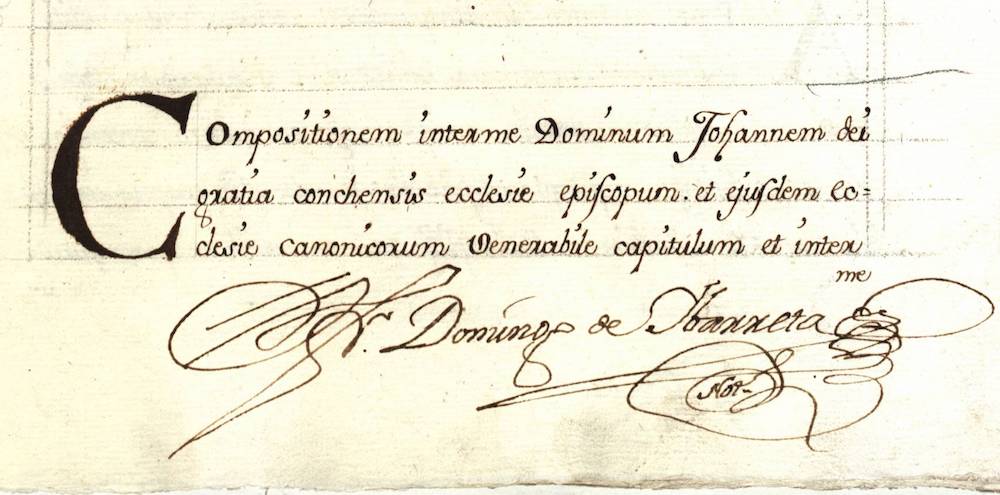 COmpositionem interme Dominum Johannem dei
gratia conchensis ecclesie episcopum. et ejusdem ec=
clesie canonicorum Venerabile capitulum et inter
me
Fr. Domingo de Ibarreta
Not